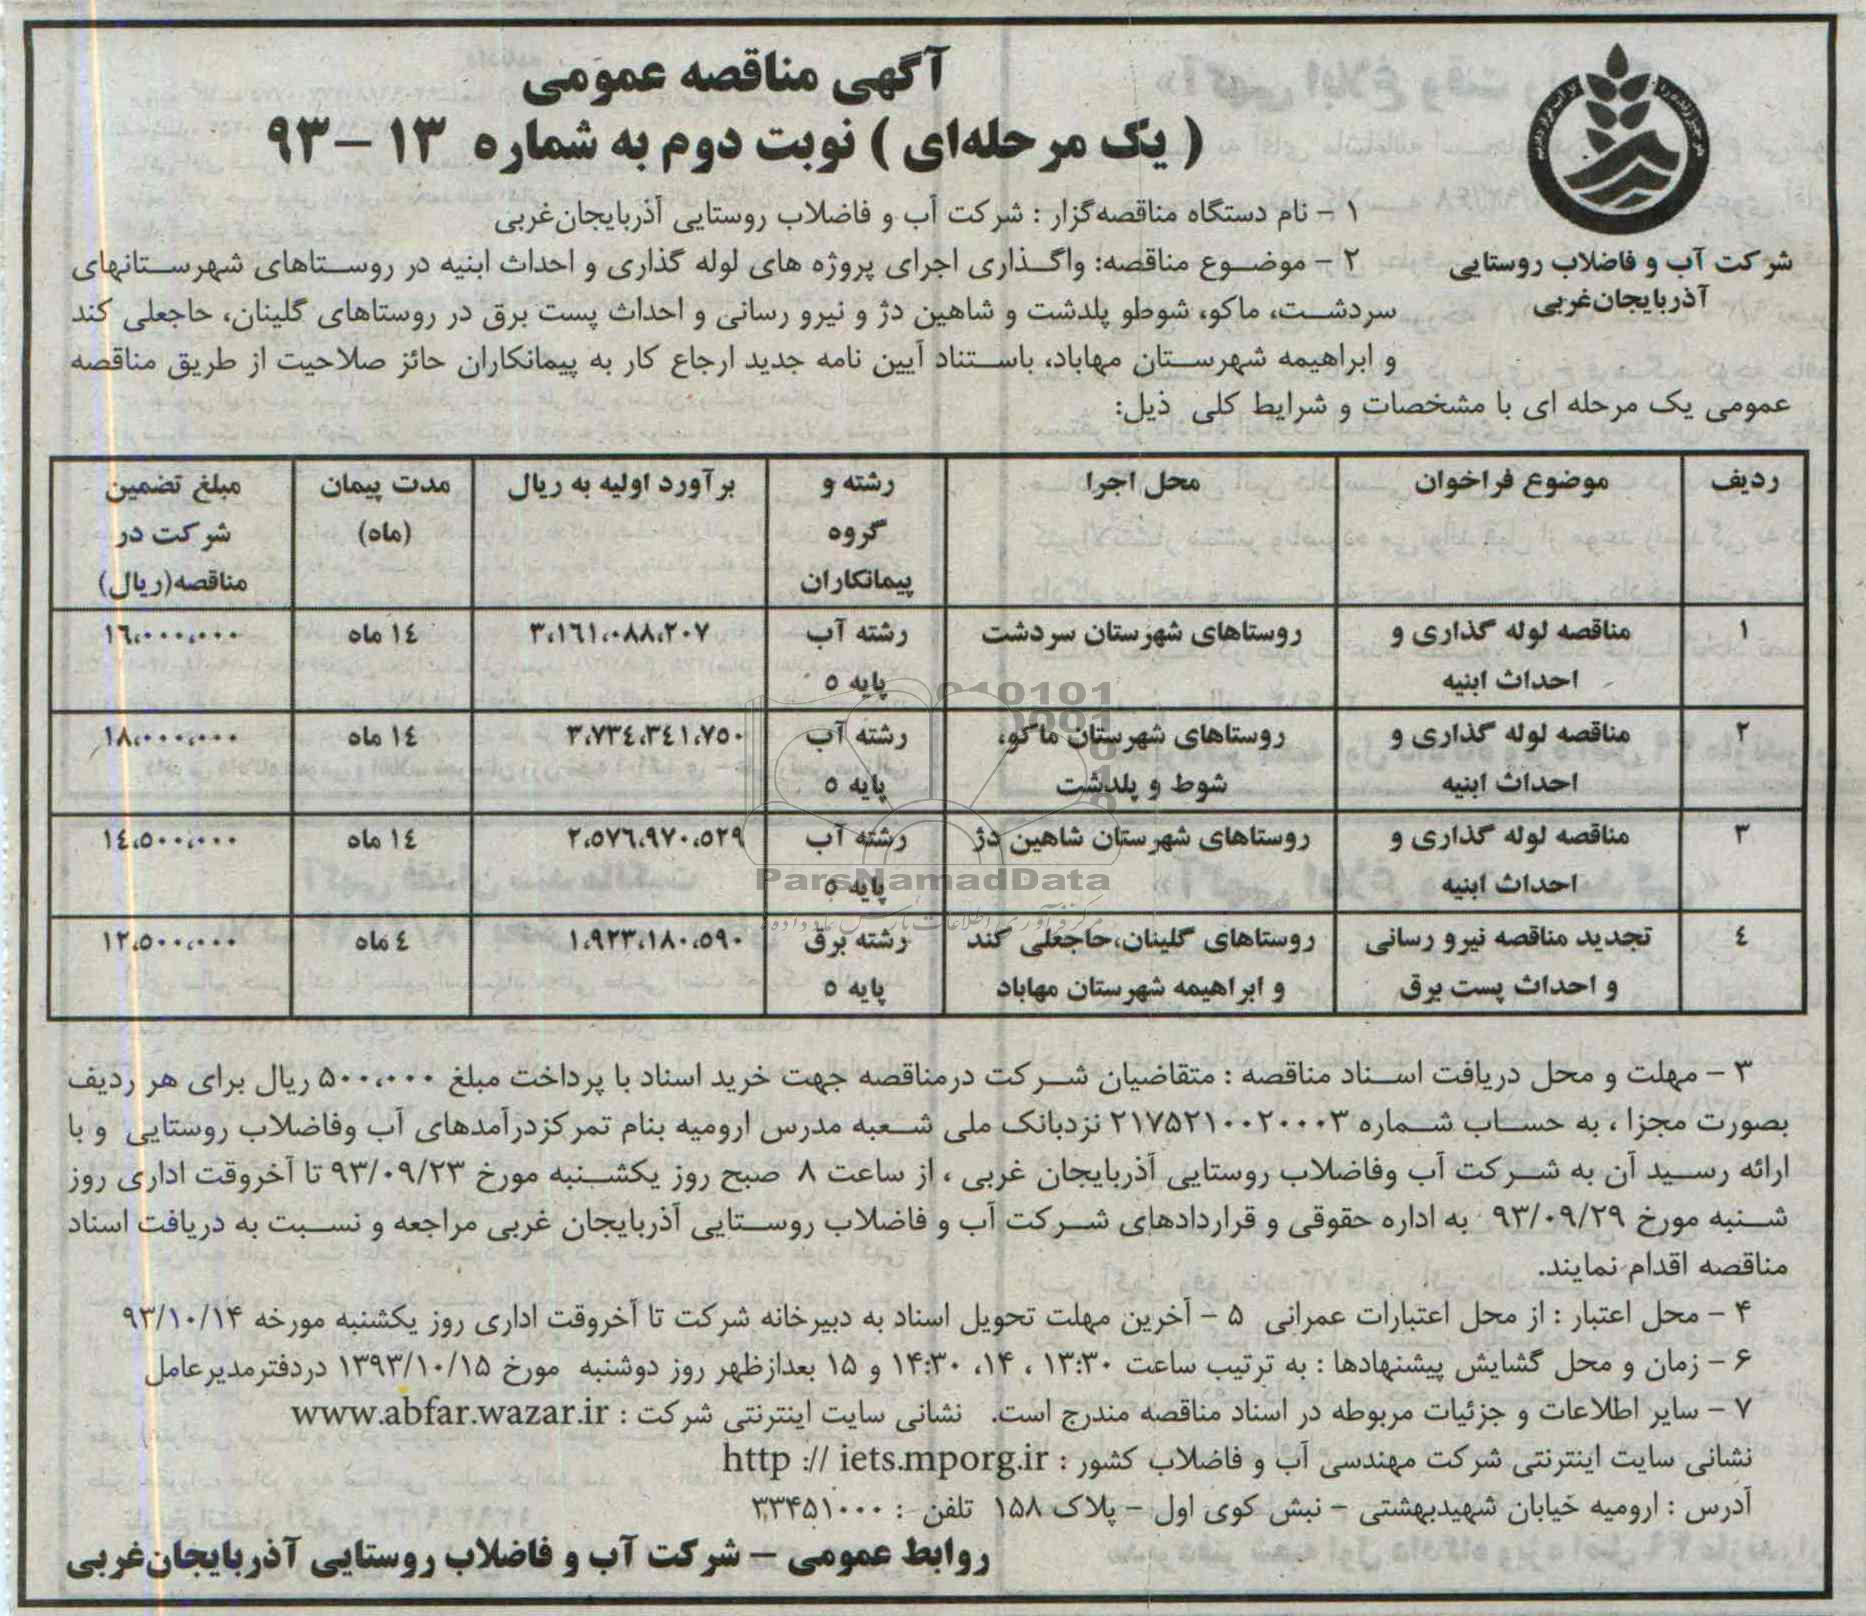 آگهی مناقصه عمومی
( یک مرحله‌ای ) نوبت دوم به شماره ۱۳ – ۹۳
شرکت آب و فاضلاب روستایی
آذربایجان‌غربی
۱ – نام دستگاه مناقصه‌گزار : شرکت آب و فاضلاب روستایی آذربایجان‌غربی
۲ – موضوع مناقصه: واگذاری اجرای پروژه های لوله گذاری و احداث ابنیه در روستاهای شهرستانهای
سردشت، ماکو، شوطو پلدشت و شاهین دژ و نیرو رسانی و احداث پست برق در روستاهای گلینان، حاجعلی کند
و ابراهیمه شهرستان مهاباد، باستناد آیین نامه جدید ارجاع کار به پیمانکاران حائز صلاحیت از طریق مناقصه
عمومی یک مرحله ای با مشخصات و شرایط کلی ذیل:
ردیف | موضوع فراخوان | محل اجرا | رشته و | برآورد اولیه به ریال | مدت پیمان | مبلغ تضمین
گروه | (ماه) | شرکت در
پیمانکاران | مناقصه(ریال)
۱ | مناقصه لوله گذاری و | روستاهای شهرستان سردشت | رشته آب | ۳،۱٦۱،۰۸۸،۲۰۷ | ۱٤ ماه | ۱٦،۰۰۰،۰۰۰
احداث ابنیه | پایه ۵
۲ | مناقصه لوله گذاری و | روستاهای شهرستان ماکو، | رشته آب | ۳،۷۳٤،۳٤۱،۷۵۰ | ۱٤ ماه | ۱۸،۰۰۰،۰۰۰
احداث ابنیه | شوط و پلدشت | پایه ۵
۳ | مناقصه لوله گذاری و | روستاهای شهرستان شاهین دژ | رشته آب | ۲،۵۷٦،۹۷۰،۵۲۹ | ۱٤ ماه | ۱٤،۵۰۰،۰۰۰
احداث ابنیه | پایه ۵
٤ | تجدید مناقصه نیرو رسانی | روستاهای گلینان،حاجعلی کند | رشته برق | ۱،۹۲۳،۱۸۰،۵۹۰ | ٤ ماه | ۱۲،۵۰۰،۰۰۰
و احداث پست برق | و ابراهیمه شهرستان مهاباد | پایه ۵
ParsNamadData
۳ – مهلت و محل دریافت اسناد مناقصه : متقاضیان شرکت درمناقصه جهت خرید اسناد با پرداخت مبلغ ۵۰۰،۰۰۰ ریال برای هر ردیف
بصورت مجزا ، به حساب شماره ۲۱۷۵۲۱۰۰۲۰۰۰۳ نزدبانک ملی شعبه مدرس ارومیه بنام تمرکزدرآمدهای آب وفاضلاب روستایی و با
ارائه رسید آن به شرکت آب وفاضلاب روستایی آذربایجان غربی ، از ساعت ۸ صبح روز یکشنبه مورخ ۹۳/۰۹/۲۳ تا آخروقت اداری روز
شنبه مورخ ۹۳/۰۹/۲۹ به اداره حقوقی و قراردادهای شرکت آب و فاضلاب روستایی آذربایجان غربی مراجعه و نسبت به دریافت اسناد
مناقصه اقدام نمایند.
۴ – محل اعتبار : از محل اعتبارات عمرانی ۵ – آخرین مهلت تحویل اسناد به دبیرخانه شرکت تا آخروقت اداری روز یکشنبه مورخه ۹۳/۱۰/۱۴
۶ – زمان و محل گشایش پیشنهادها : به ترتیب ساعت ۱۳:۳۰ ، ۱۴، ۱۴:۳۰ و ۱۵ بعدازظهر روز دوشنبه مورخ ۱۳۹۳/۱۰/۱۵ دردفترمدیرعامل
۷ – سایر اطلاعات و جزئیات مربوطه در اسناد مناقصه مندرج است. نشانی سایت اینترنتی شرکت : www.abfar.wazar.ir
نشانی سایت اینترنتی شرکت مهندسی آب و فاضلاب کشور : http :// iets.mporg.ir
آدرس : ارومیه خیابان شهیدبهشتی – نبش کوی اول – پلاک ۱۵۸ تلفن : ۳۳۴۵۱۰۰۰
روابط عمومی – شرکت آب و فاضلاب روستایی آذربایجان‌غربی